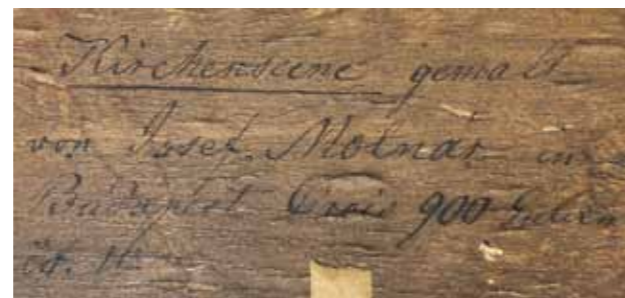 Kirchenscene gemalt
von Josef Molnár in
Budapest Preis 900 Gulden
öst. W